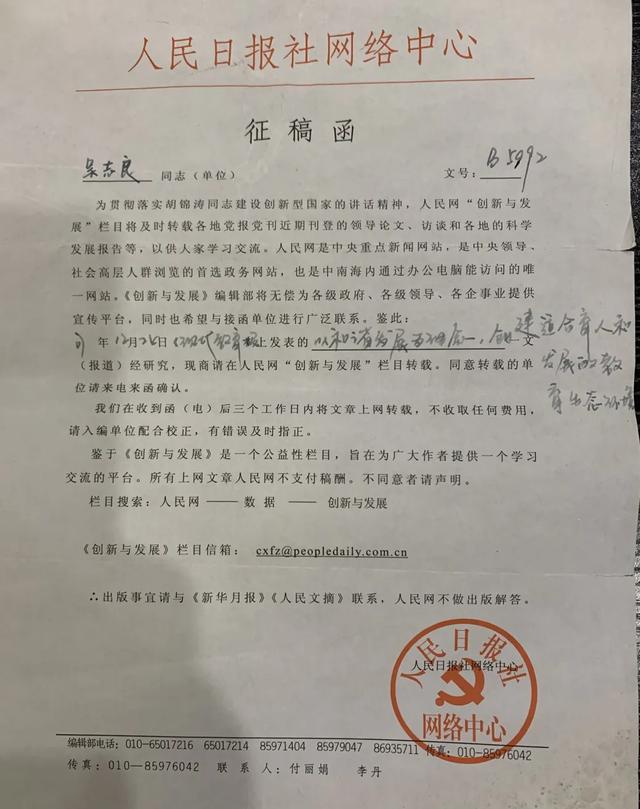 人民日报社网络中心
征稿函
吴志良 同志(单位) 文号: B5992
为贯彻落实胡锦涛同志建设创新型国家的讲话精神,人民网“创新与发
展”栏目将及时转载各地党报党刊近期刊登的领导论文、访谈和各地的科学
发展报告等,以供人家学习交流。人民网是中央重点新闻网站,是中央领导、
社会高层人群浏览的首选政务网站,也是中南海内通过办公电脑能访问的唯
一网站。《创新与发展》编辑部将无偿为各级政府、各级领导、各企事业提供
宣传平台,同时也希望与接函单位进行广泛联系。鉴此:
年12月26日《现代教育报》上发表的 以和谐发展为理念,创建适合育人和发展的教育生态环境 文
(报道)经研究,现商请在人民网“创新与发展”栏目转载。同意转载的单
位请来电来函确认。
我们在收到函(电)后三个工作日内将文章上网转载,不收取任何费用,
请入编单位配合校正,有错误及时指正。
鉴于《创新与发展》是一个公益性栏目,旨在为广大作者提供一个学习
交流的平台。所有上网文章人民网不支付稿酬。不同意者请声明。
栏目搜索:人民网 —— 数据 —— 创新与发展
《创新与发展》栏目信箱: cxfz@peopledaily.com.cn
∴出版事宜请与《新华月报》《人民文摘》联系,人民网不做出版解答。
人民日报社网络中心
人民日报社
网络中心
编辑部电话:010-65017216 65017214 85971404 85979047 86935711 传真:010-85976042
传真:010—85976042 联系人:付丽娟 李丹